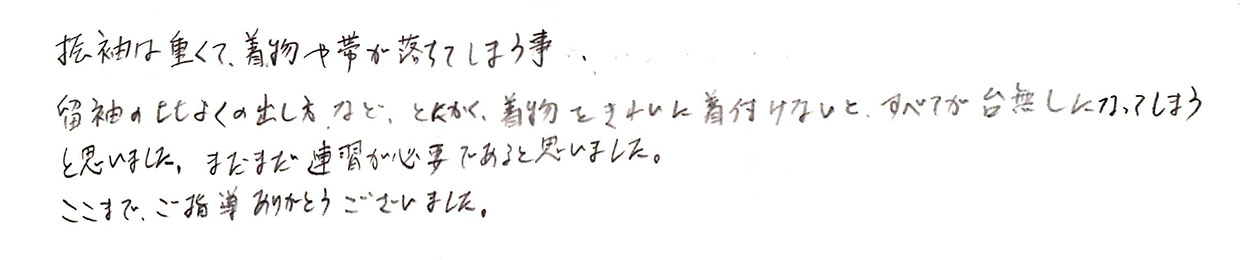 振袖は重くて、着物や帯が落ちてしまう事、
留袖のヒヨクの出し方など、とにかく、着物をきれいに着付けないと、すべてが台無しになってしまう
と思いました。まだまだ練習が必要であると思いました。
ここまで、ご指導ありがとうございました。